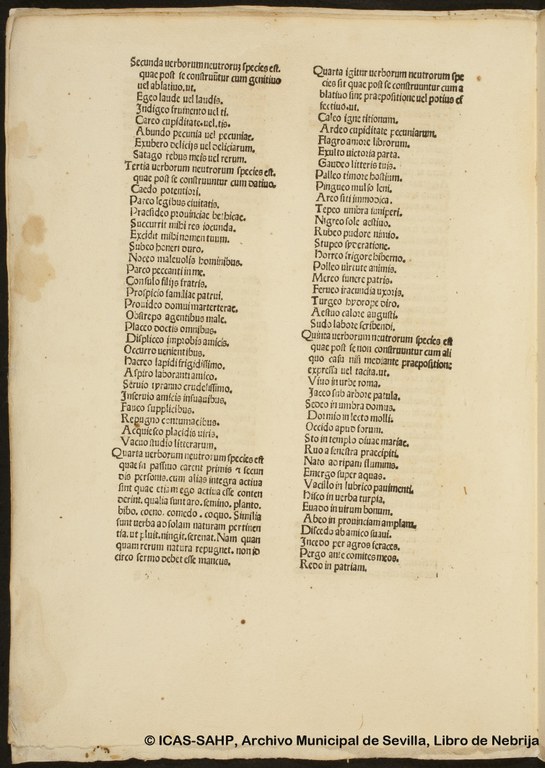 Secunda uerborum neutroruȝ species est.
quae post se construūtur cum genitiuo
uel ablatiuo.ut.
Egeo laude uel laudis.
Indigeo frumento uel ti.
Careo cupiditate.uel.tis.
Abundo pecunia uel pecuniae.
Exubero delicijs uel deliciarum.
Satago rebus meis uel rerum.
Tertia uerborum neutrorum species est.
quae post se construuntur cum datiuo.
Caedo potentiori.
Pareo legibus ciuitatis.
Praesideo prouinciae bethicae.
Succurrit mihi res iocunda.
Excidit mihi nomen tuum.
Subeo honeri duro.
Noceo maleuolis hominibus.
Parco peccanti in me.
Consulo filijs fratris.
Prospicio familiae patrui.
Prouideo domui marterterae.
Obstrepo agentibus male.
Placeo doctis omnibus.
Displiceo improbis amicis.
Occurro uenientibus.
Haereo lapidi frigidissimo.
Aspiro laboranti amico.
Seruio tyranno crudelissimo.
Inseruio amicis insuauibus.
Faueo supplicibus.
Repugno contumacibus.
Acquiesco placidis uiris.
Vaco studio litterarum.
Quarta uerborum neutrorum species est
quae in passiuo carent primis & secun
dis personis.cum alias integra actiua
sint quae etiam ego actiua esse conten
derint.qualia sunt aro.semino.planto.
bibo.coeno.comedo.coquo. Similia
sunt uerba ad solam naturam pertinen
tia.ut pluit.ningit.serenat. Nam quan
quam rerum natura repugnet.non id
circo sermo debet esse mancus.
Quarta igitur uerborum neutrorum spe
cies sit quae post se construuntur cum a
blatiuo sine praepositione uel potius ef
fectiuo.ut.
Caleo igne titionum.
Ardeo cupiditate pecuniarum.
Flagro amore librorum.
Exulto uictoria parta.
Gaudeo litteris tuis.
Palleo timore hostium.
Pingueo mulso leni.
Areo siti immodica.
Tepeo umbra iuniperi.
Nigreo sole aestiuo.
Rubeo pudore nimio.
Stupeo admiratione.
Horreo frigore hiberno.
Polleo uirtute animis.
Mereo funere patris.
Ferueo iracundia uxoris.
Turgeo hydrope diro.
Aestuo calore augusti.
Sudo labore scribendi.
Quinta uerborum neutrorum species est
quae post se non construuntur cum ali
quo casu nisi mediante praepositione
expressa uel tacita.ut.
Viuo in urbe roma.
Iaceo sub arbore patula.
Sedeo in umbra domus.
Dormio in lecto molli.
Occido apud forum.
Sto in templo diuae mariae.
Ruo a fenestra praecipiti.
Nato ad ripam fluminis.
Emergo super aquas.
Vacillo in lubrico pauimenti.
Hisco in uerba turpia.
Euado in uirum bonum.
Abeo in prouinciam amplam.
Discedo ab amico suaui.
Incedo per agros feraces.
Pergo ante comites meos.
Redeo in patriam.
© ICAS-SAHP, Archivo Municipal de Sevilla, Libro de Nebrija